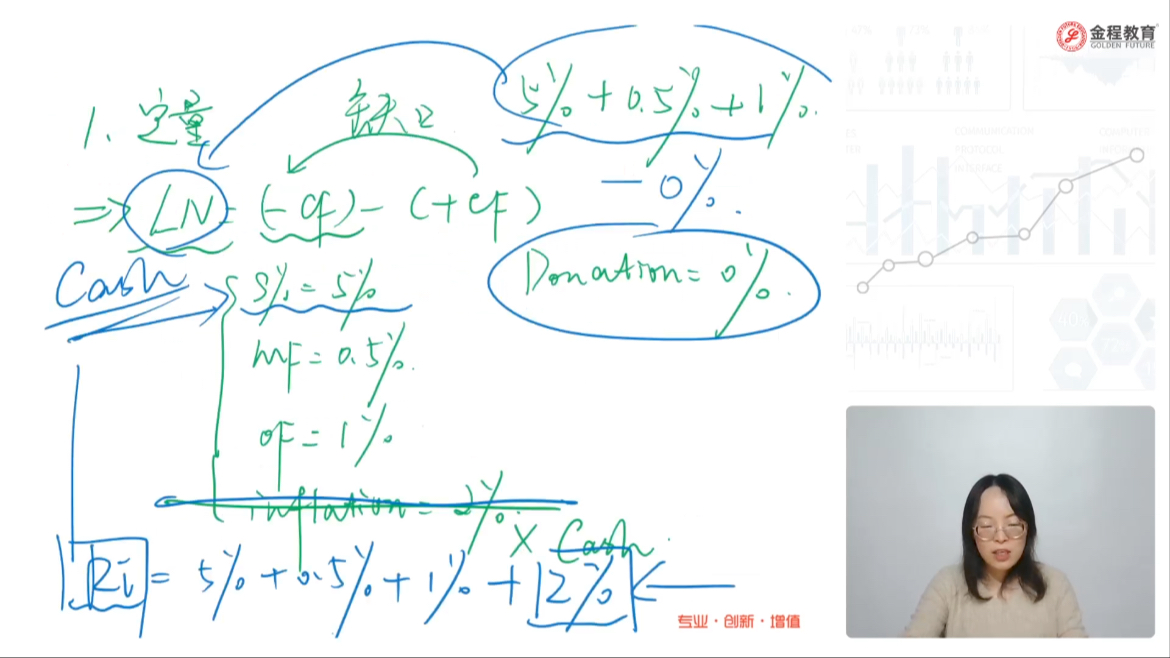 金程教育
GOLDEN FUTURE
5% + 0.5% + 1%.
1. 定量
缺口
- 0%.
⇒ LN = (-CF) - (+CF)
Cash
S% = 5%
Donation = 0%.
MF = 0.5%.
OF = 1%
inflation = 2%.
X Cash.
Ri = 5% + 0.5% + 1% + 2%
专业·创新·增值